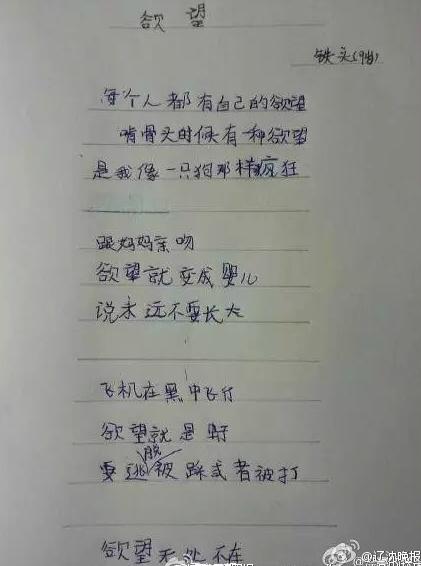 欲望
铁头(9岁)
每个人都有自己的欲望
啃骨头时候有一种欲望
是我像一只狗那样疯狂
跟妈妈亲吻
欲望就变成婴儿
说永远不要长大
飞机在黑中飞行
欲望就是蚜
要逃脱被踩或者被打
欲望无处不在
@辽沈晚报